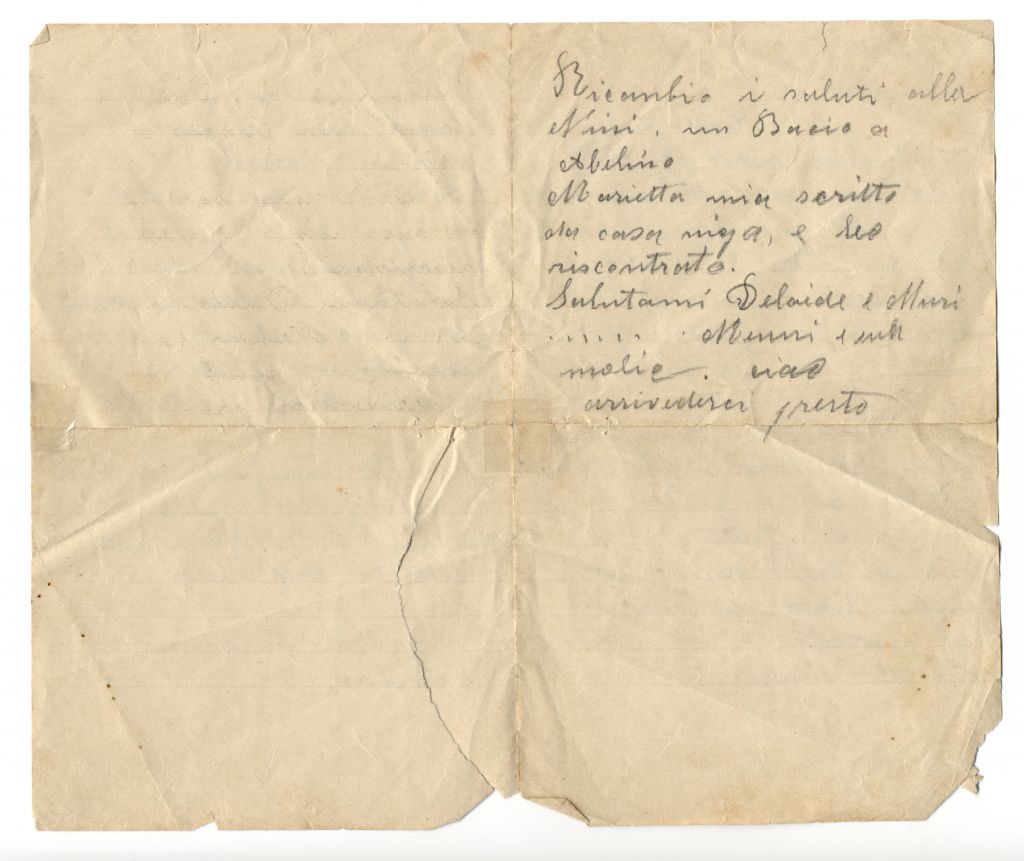 Ricambio i saluti alla
Ninì, un Bacio a
Abelino
Marietta mia scritto
da casa niga, e leo
riscontrato.
Salutami Delaide e Muri
..... . Menni e
molie. ciao
arrivederci presto